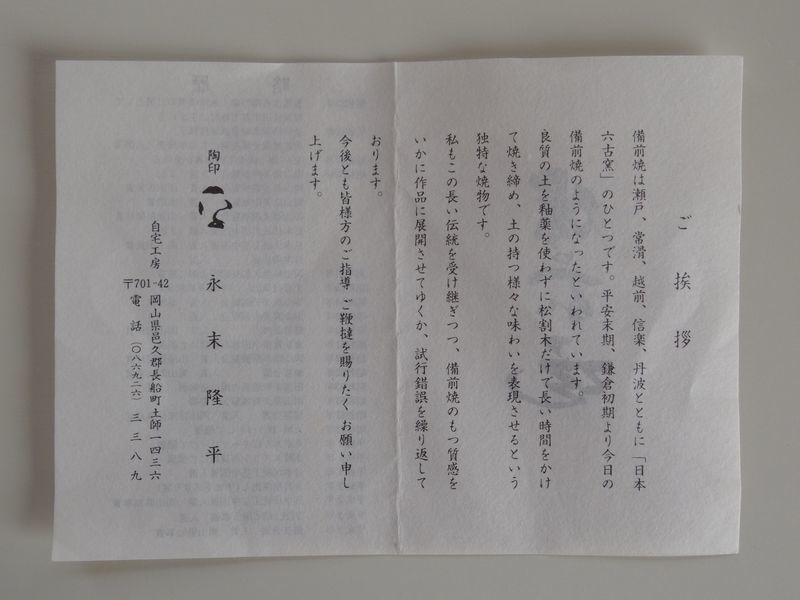 ご挨拶
備前焼は瀬戸、常滑、越前、信楽、丹波とともに「日本
六古窯」のひとつです。平安末期、鎌倉初期より今日の
備前焼のようになったといわれています。
良質の土を釉薬を使わずに松割木だけで長い時間をかけ
て焼き締め、土の持つ様々な味わいを表現させるという
独特な焼物です。
私もこの長い伝統を受け継ぎつつ、備前焼のもつ質感を
いかに作品に展開させてゆくか、試行錯誤を繰り返して
おります。
今後とも皆様方のご指導 ご鞭撻を賜りたく お願い申し
上げます。
陶印
永末隆平
自宅工房
〒701-42
岡山県邑久郡長船町土師一四三六
電話(〇八六九二六)三三八九